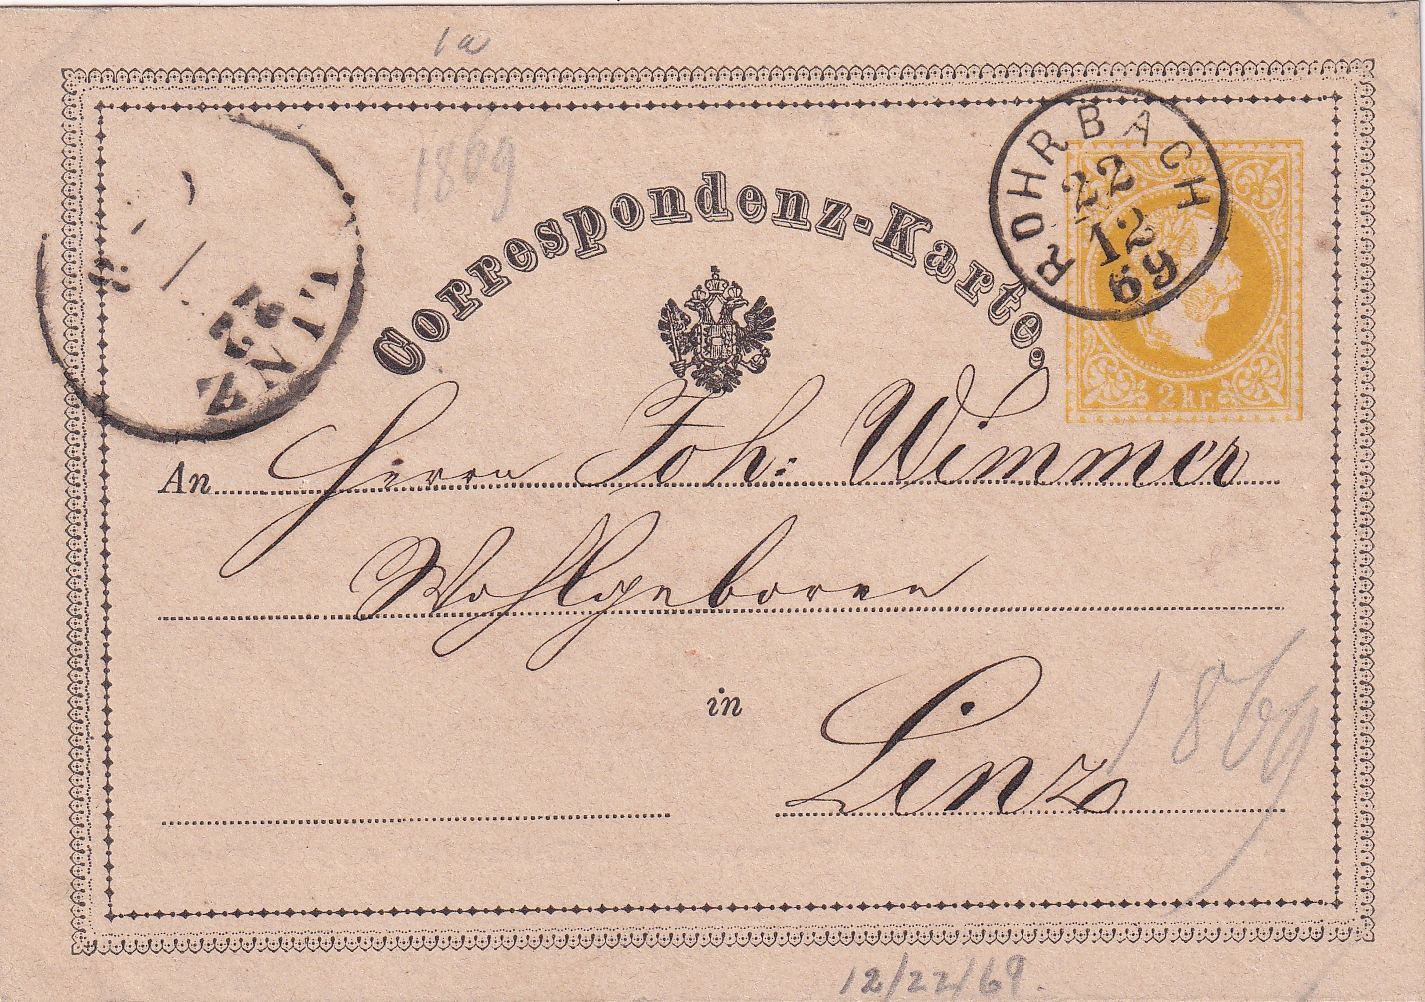 1a
1869
Correspondenz-Karte.
ROHRBACH
22
12
69
LINZ
22
2 kr.
An Herrn Joh: Wimmer
Wohlgeboren
in Linz
1869
12/22/69.